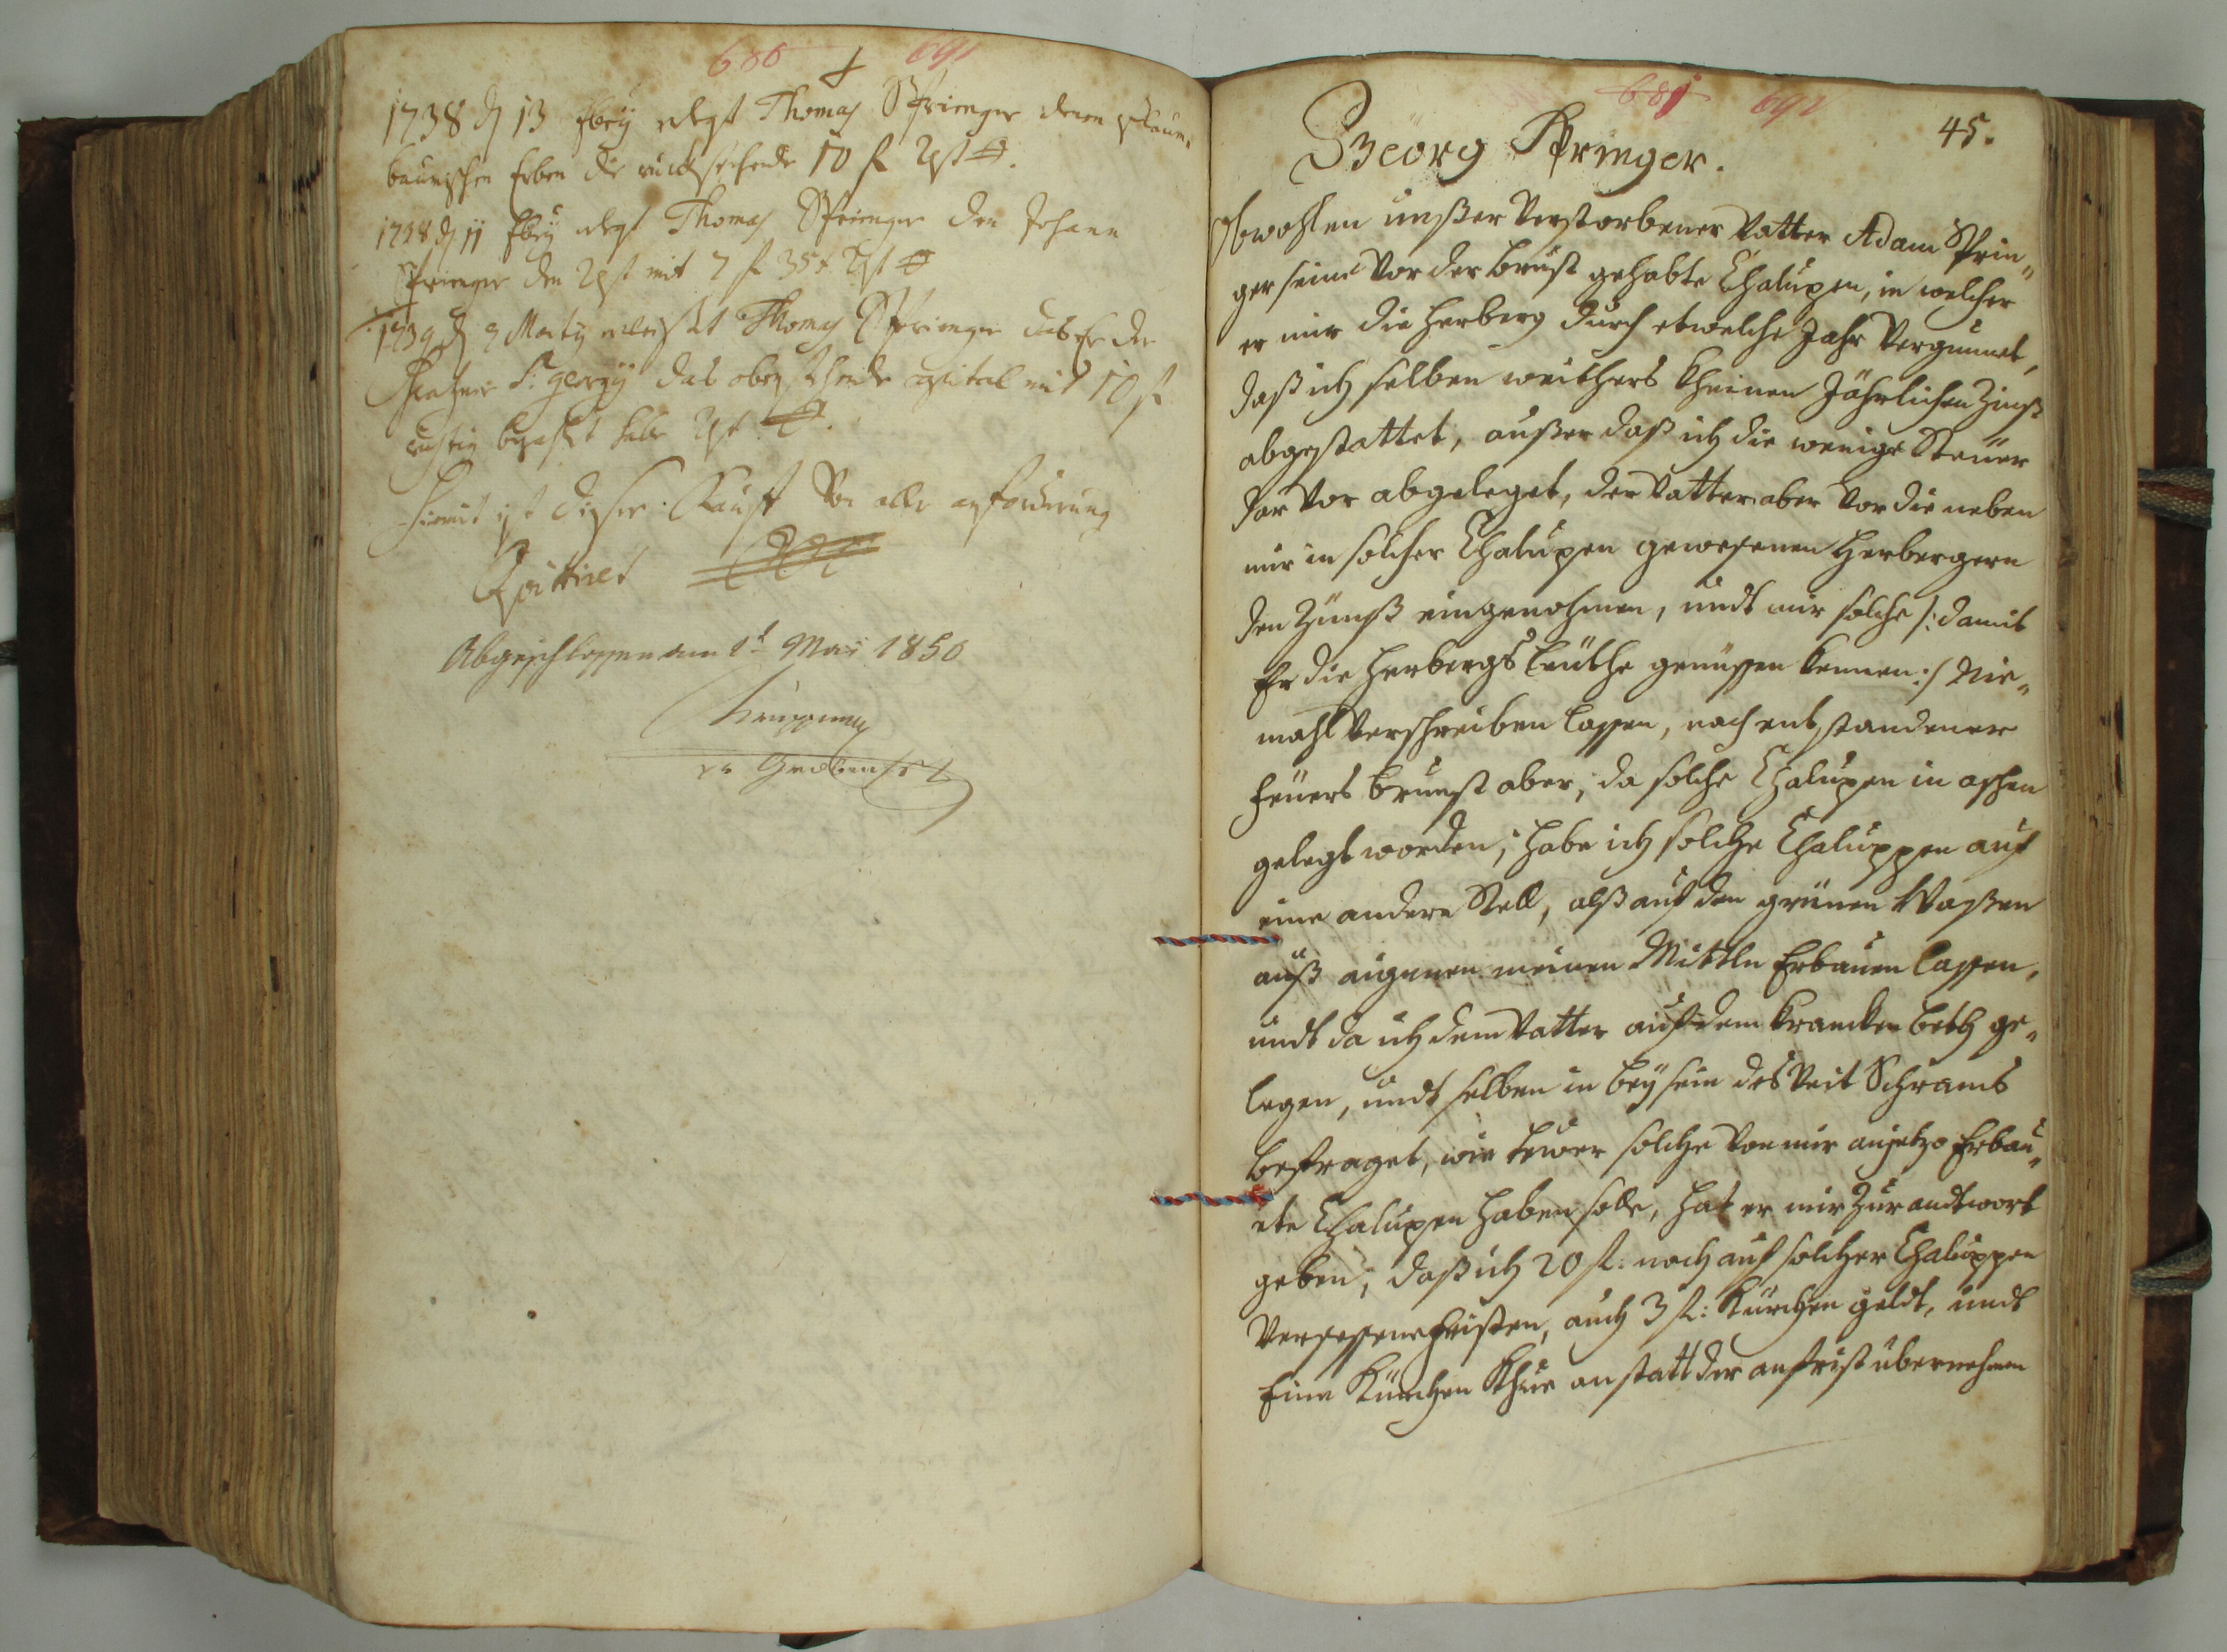 680 691
1738 d 13 erlegt Thomas Springer denen
baumischen Erben die rückstehende 10 f
1738 d 11 erlegt Thomas Springer den Johann
Springer den mit 7 f 35 x
1739 d 9 Marty Thomas Springer das Er der
St: Georgy das obenstehende capital mit 10 f
richtig bezahlt habe
Hiemit ist dieser Kauff Von aller anforderung
Quittiret
Abgeschlossen am 1t Mai 1850
681 692
45.
Geörg Springer.
Obwohlen unßer Verstorbener Vatter Adam Sprin„
ger seine Vor der brust gehabte Chalupen, in welcher
er mir die Herberg durch etwelche Jahr Vergunnet,
daß ich selben weithers kheinen Jährlichen Zinß
abgestattet, außer daß ich die wenige Steüer
dar Vor abgeleget, der Vatter aber Vor die neben
mir in solcher Chalupen gewesenen Herbergern
den Zünß eingenohmen, undt mir solche /: damit
Er die Herbergs leüthe genüssen kennen :/ Nie„
mahl Verschreiben lassen, nach entstandener
feüers brunst aber, da solche Chalupen in aschen
gelegt worden, habe ich solche Chaluppen auf
eine andere Stell, alß auf den grünen Waßen
auß aigenen meinen Mittln Erbauen lassen,
undt da ich dem Vatter auf dem krancken beth ge„
legen, undt selben in beÿsein des Veit Schrams
befraget, wie teuer solche Von mir anjetzo Erbau„
ete Chalupen haben solle, hat er mir Zur andtwort
geben, daß ich 20 fl: noch auf solcher Chaluppen
Versessene fristen, auch 3 fl: Kürchen geldt, undt
Eine Kürchen Khue anstatt der anfrist übernehmen